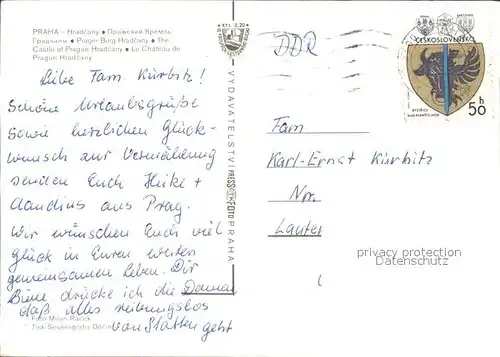 PRAHA — Hradčany • Пражский Кремль
Градчани • Prager Burg Hradčany • The
Castle of Prague Hradčany • Le Château de
Prague Hradčany
Liebe Fam. Kürbitz!
Schöne Urlaubsgrüße
sowie herzlichen Glück-
wunsch zur Vermählung
senden Euch Heike +
Claudius aus Prag.
Wir wünschen Euch viel
Glück in Eurem weiteren
gemeinsamen Leben. Dir
drücke ich die Daumen
daß alles reibungslos
von Statten geht
Foto Milan Racek
Tisk Severografia Děčín
Kčs 0,20
VYDAVATELSTVÍ PRESSFOTO PRAHA
DDR
ČESKOSLOVENSKO
50 h
Fam
Karl-Ernst Kürbitz
Nr.
Lauter
privacy protection
Datenschutz